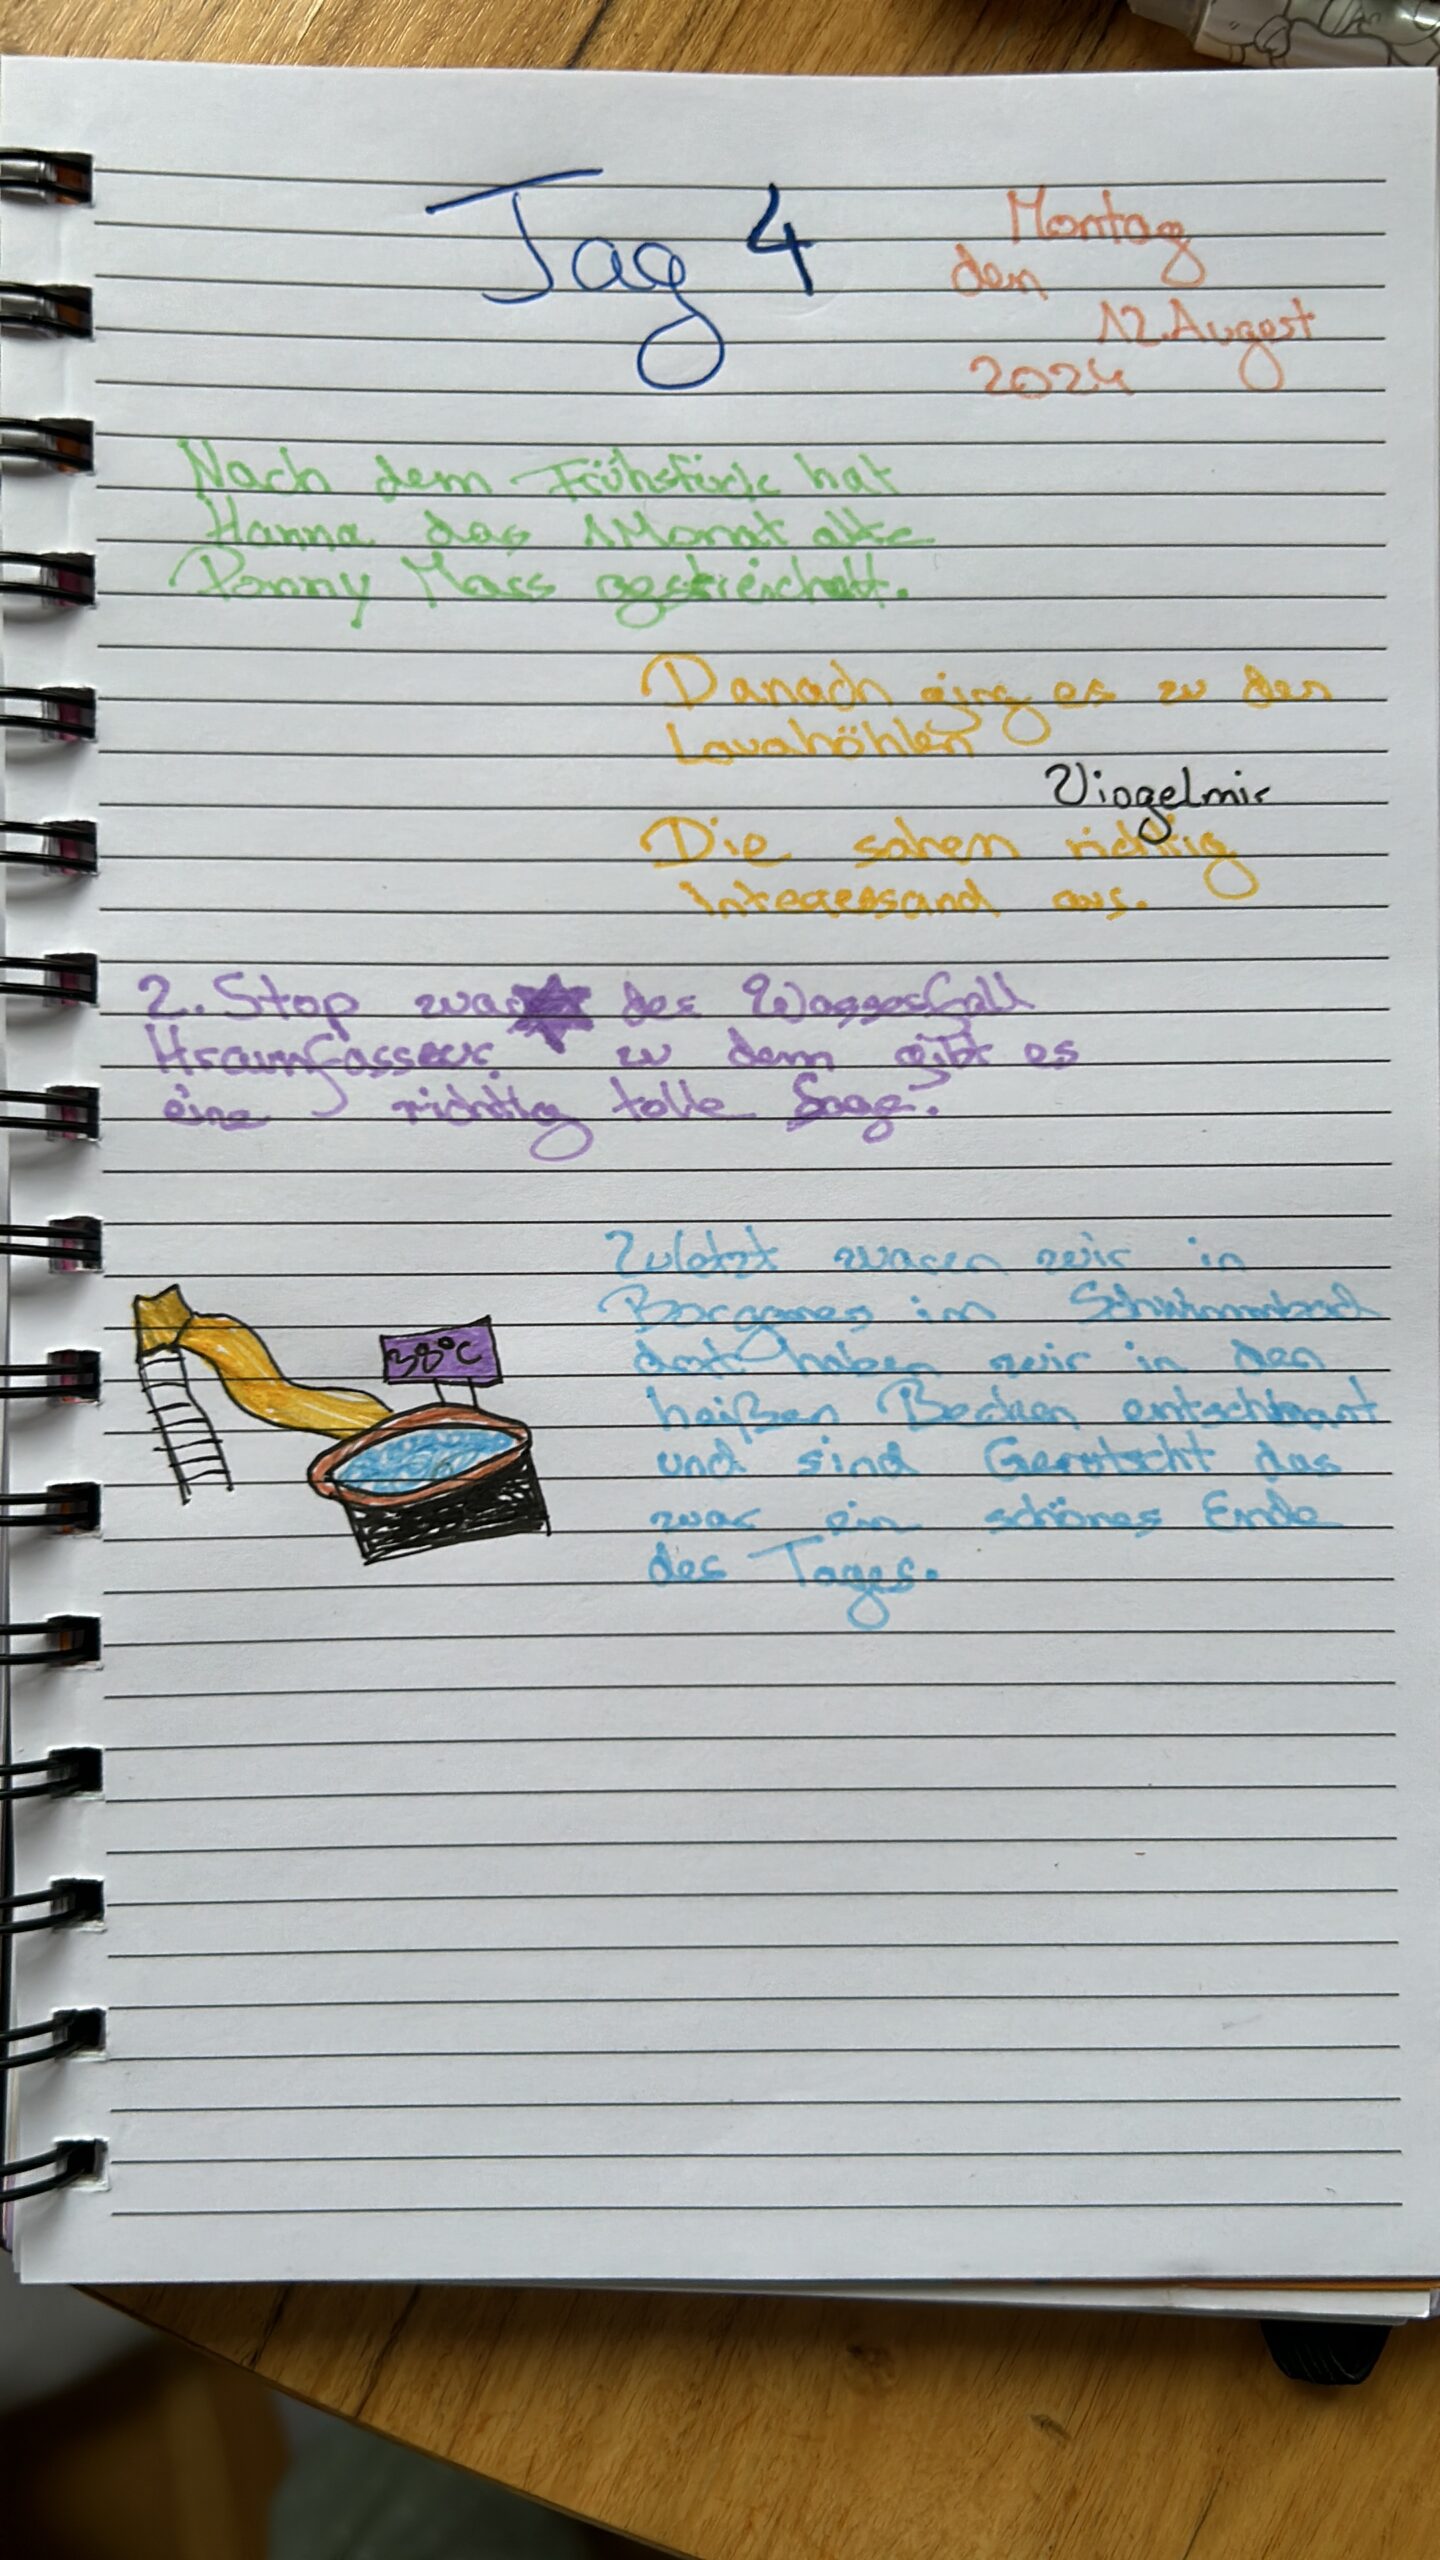 Tag 4
Montag
den
12. Augest
2024
Nach dem Frühstück hat
Hanna das 1 Monat alte
Ponny Mars gestreichelt.
Danach ging es zu den
Lavahöhlen
Viogelmir
Die sahen richtig
interessand aus.
2. Stop war der Wasserfall
Hraunfosseur. zu dem gibt es
eine richtig tolle Sage.
Zuletzt waren wir in
Borganes im Schwimmbad
dort haben wir in den
heißen Becken entschbant
und sind Gerutscht das
war ein schönes Ende
des Tages.
38°C